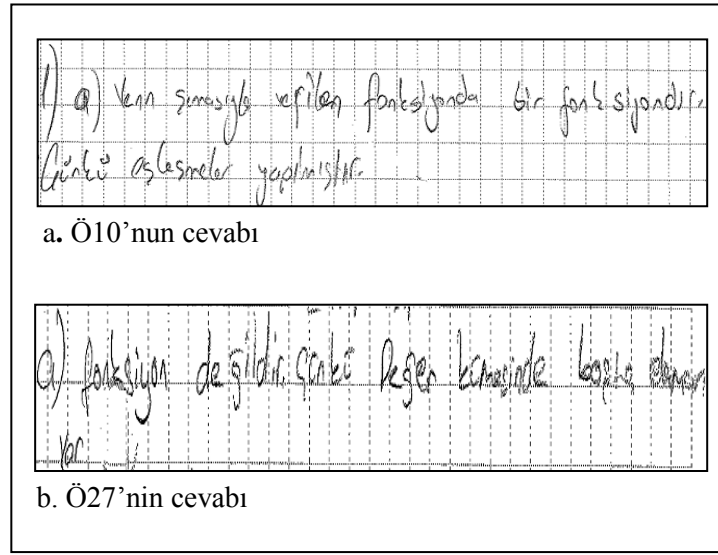 1) a) Venn şemasıyla verilen fonksiyonda bir fonksiyondır.
Çünkü eşleşmeler yapılmıştır.
a. Ö10’nun cevabı
a) fonksiyon değildir. Çünkü Değer kümesinde boşta eleman
var
b. Ö27’nin cevabı